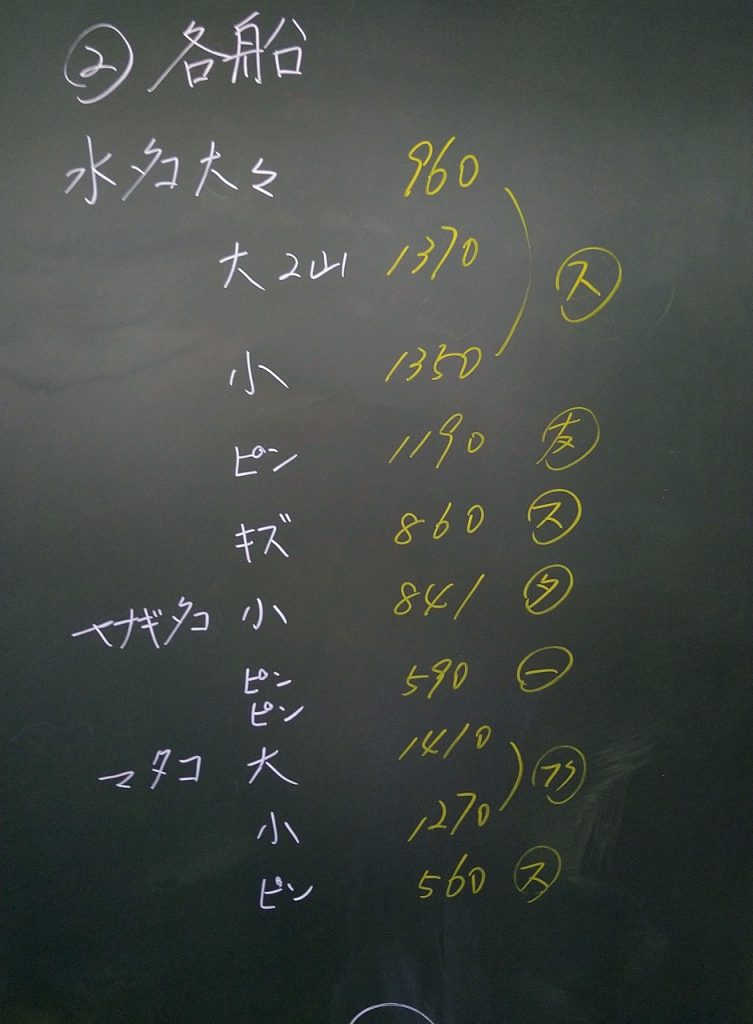 ② 各船
水タコ 大々 960
大 2山 1370 ㋜
小 1350
ピン 1190 友
キズ 860 ㋜
ヤナギタコ 小 841 ㋟
ピンピン 590 ㊀
マタコ 大 1410
小 1270
ピン 560 ㋜